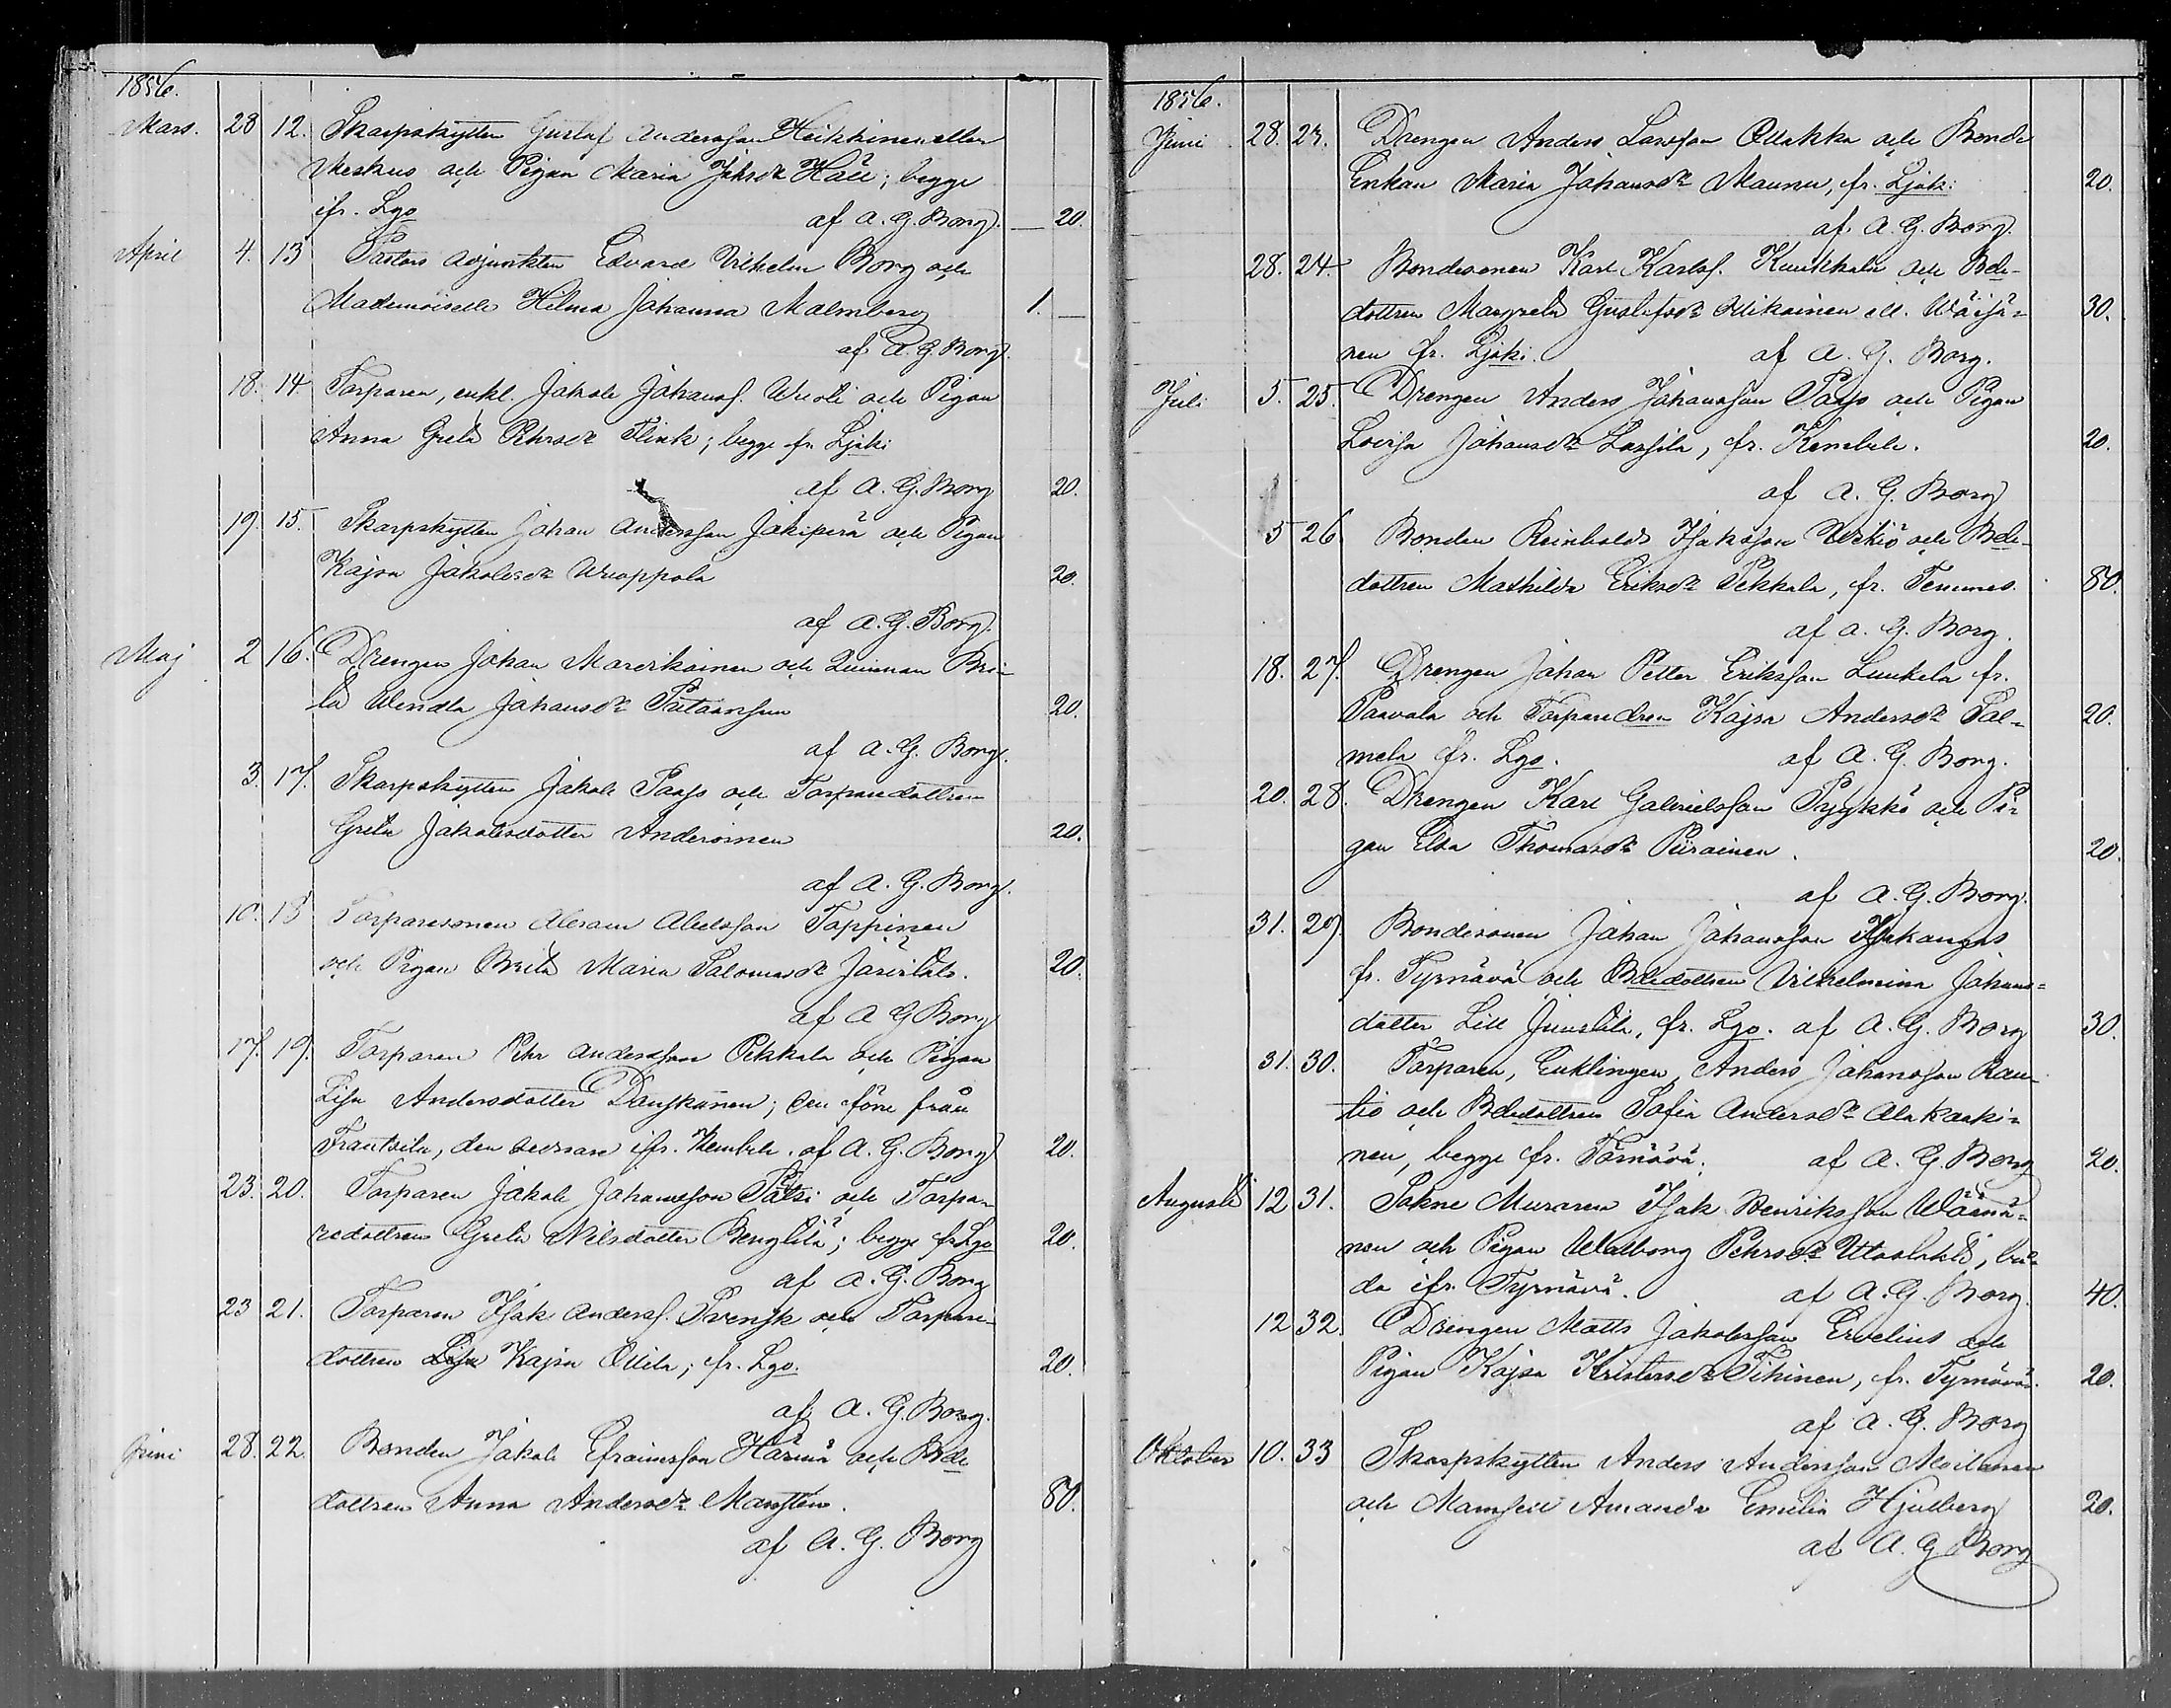 1856.
Mars. 28 12. Skarpskytten Gustaf Andersson Heikkinen eller
Meskus och Pigan Maria Johsdr Häll; begge
ifr. Lgo af A. G. Borg. — 20.
April 4. 13 Pastors adjunkten Edvard Vilhelm Borg och
Mademoiselle Hilma Johanna Malmberg 1. —
af A. G. Borg.
18. 14. Torparen, enkl. Jakob Johanss. Wuoti och Pigan
Anna Greta Pehrsdr Flink; begge fr. Ljoki
af A. G. Borg 20.
19. 15. Skarpskytten Johan Andersson Jokiperä och Pigan
Kajsa Jakobsdr Wuoppola 20.
af A. G. Borg.
Maj 2 16. Drengen Johan Marerikainen och Quinnan Bri-
ta Wendla Johansdr Putaansuu 20.
af A. G. Borg.
3. 17. Skarpskytten Jakob Paaso och Torparedottren
Greta Jakobsdotter Anderoinen 20.
af A. G. Borg.
10. 18 Torparesonen Abram Abelsson Toppinen
och Pigan Brita Maria Salomosdr Jäsirtalo. 20.
af A G Borg
17. 19. Torparen Pehr Andersson Pekkala och Pigan
Lisa Andersdotter Danskanen; den förre från
Frantsila, den sednare ifr. Kembele. af A. G. Borg 20.
23. 20. Torparen Jakob Johansson Pätsi och Torpa-
redottren Greta Nilsdotter Benglitä; begge fr Lgo 20.
af A. G. Borg
23 21. Torparen Isak Anderss. Svensk och Torpare-
dottren Lisa Kajsa Ollila; fr. Lgo. 20.
af A. G. Borg.
Juni 28. 22. Bonden Jakob Efraimsson Härmä och Bde
dottren Anna Andersdr Marttin. 80.
af A. G. Borg
1856.
Juni 28. 23. Drengen Anders Larsson Ollakka och Bonde
Enkan Maria Johansdr Maunu, fr. Ljoki: 20.
af A. G. Borg.
28. 24. Bondesonen Karl Karlss. Kuukkala och Bde-
dottren Margreta Gustafsdr Mikainen ell. Wäisä- 30.
nen fr. Ljoki. af A. G. Borg.
Juli 5. 25. Drengen Anders Johansson Paaso och Pigan
Lovisa Johansdr Lassila, fr. Kembele. 20.
af A. G. Borg
5 26 Bonden Reinholds Isaksson Yrkiö och Bde-
dottren Mathilda Eriksdr Pekkala, fr. Temmes. 80.
af A. G. Borg.
18. 27. Drengen Johan Petter Eriksson Luukela fr.
Paavola och Torparedren Kajsa Andersdr Sal- 20.
mela fr. Lgo. af A. G. Borg.
20. 28. Drengen Karl Gabrielsson Pyykkö och Pi-
gan Elsa Thomasdr Piirainen. 20.
af A. G. Borg.
31. 29. Bondesonen Johan Johansson Isokangas
fr. Tyrnävä och Bdedottren Vilhelmina Johans-
dotter Lill Juusola, fr. Lgo. af A. G. Borg 30.
31. 30. Torparen, Enklingen, Anders Johansson Rau-
tio och Bdedottren Sofia Andersdr Alakaski-
nen, begge fr. Törnävä. af A. G. Borg 20.
Augusti 12 31. Sokne Muraren Isak Henriksson Wäänä-
nen och Pigan Walborg Pehrsdr Utoslahti, bå-
da ifr. Tyrnävä. af A. G. Borg. 40.
12 32. Drengen Matts Jakobsson Ervelius och
Pigan Kajsa Kristersdr Tihinen, fr. Tyrnävä. 20.
af A. G. Borg
Oktober 10. 33 Skarpskytten Anders Andersson Moilanen
och Mamsell Amanda Emilia Hjulberg 20.
af A. G. Borg